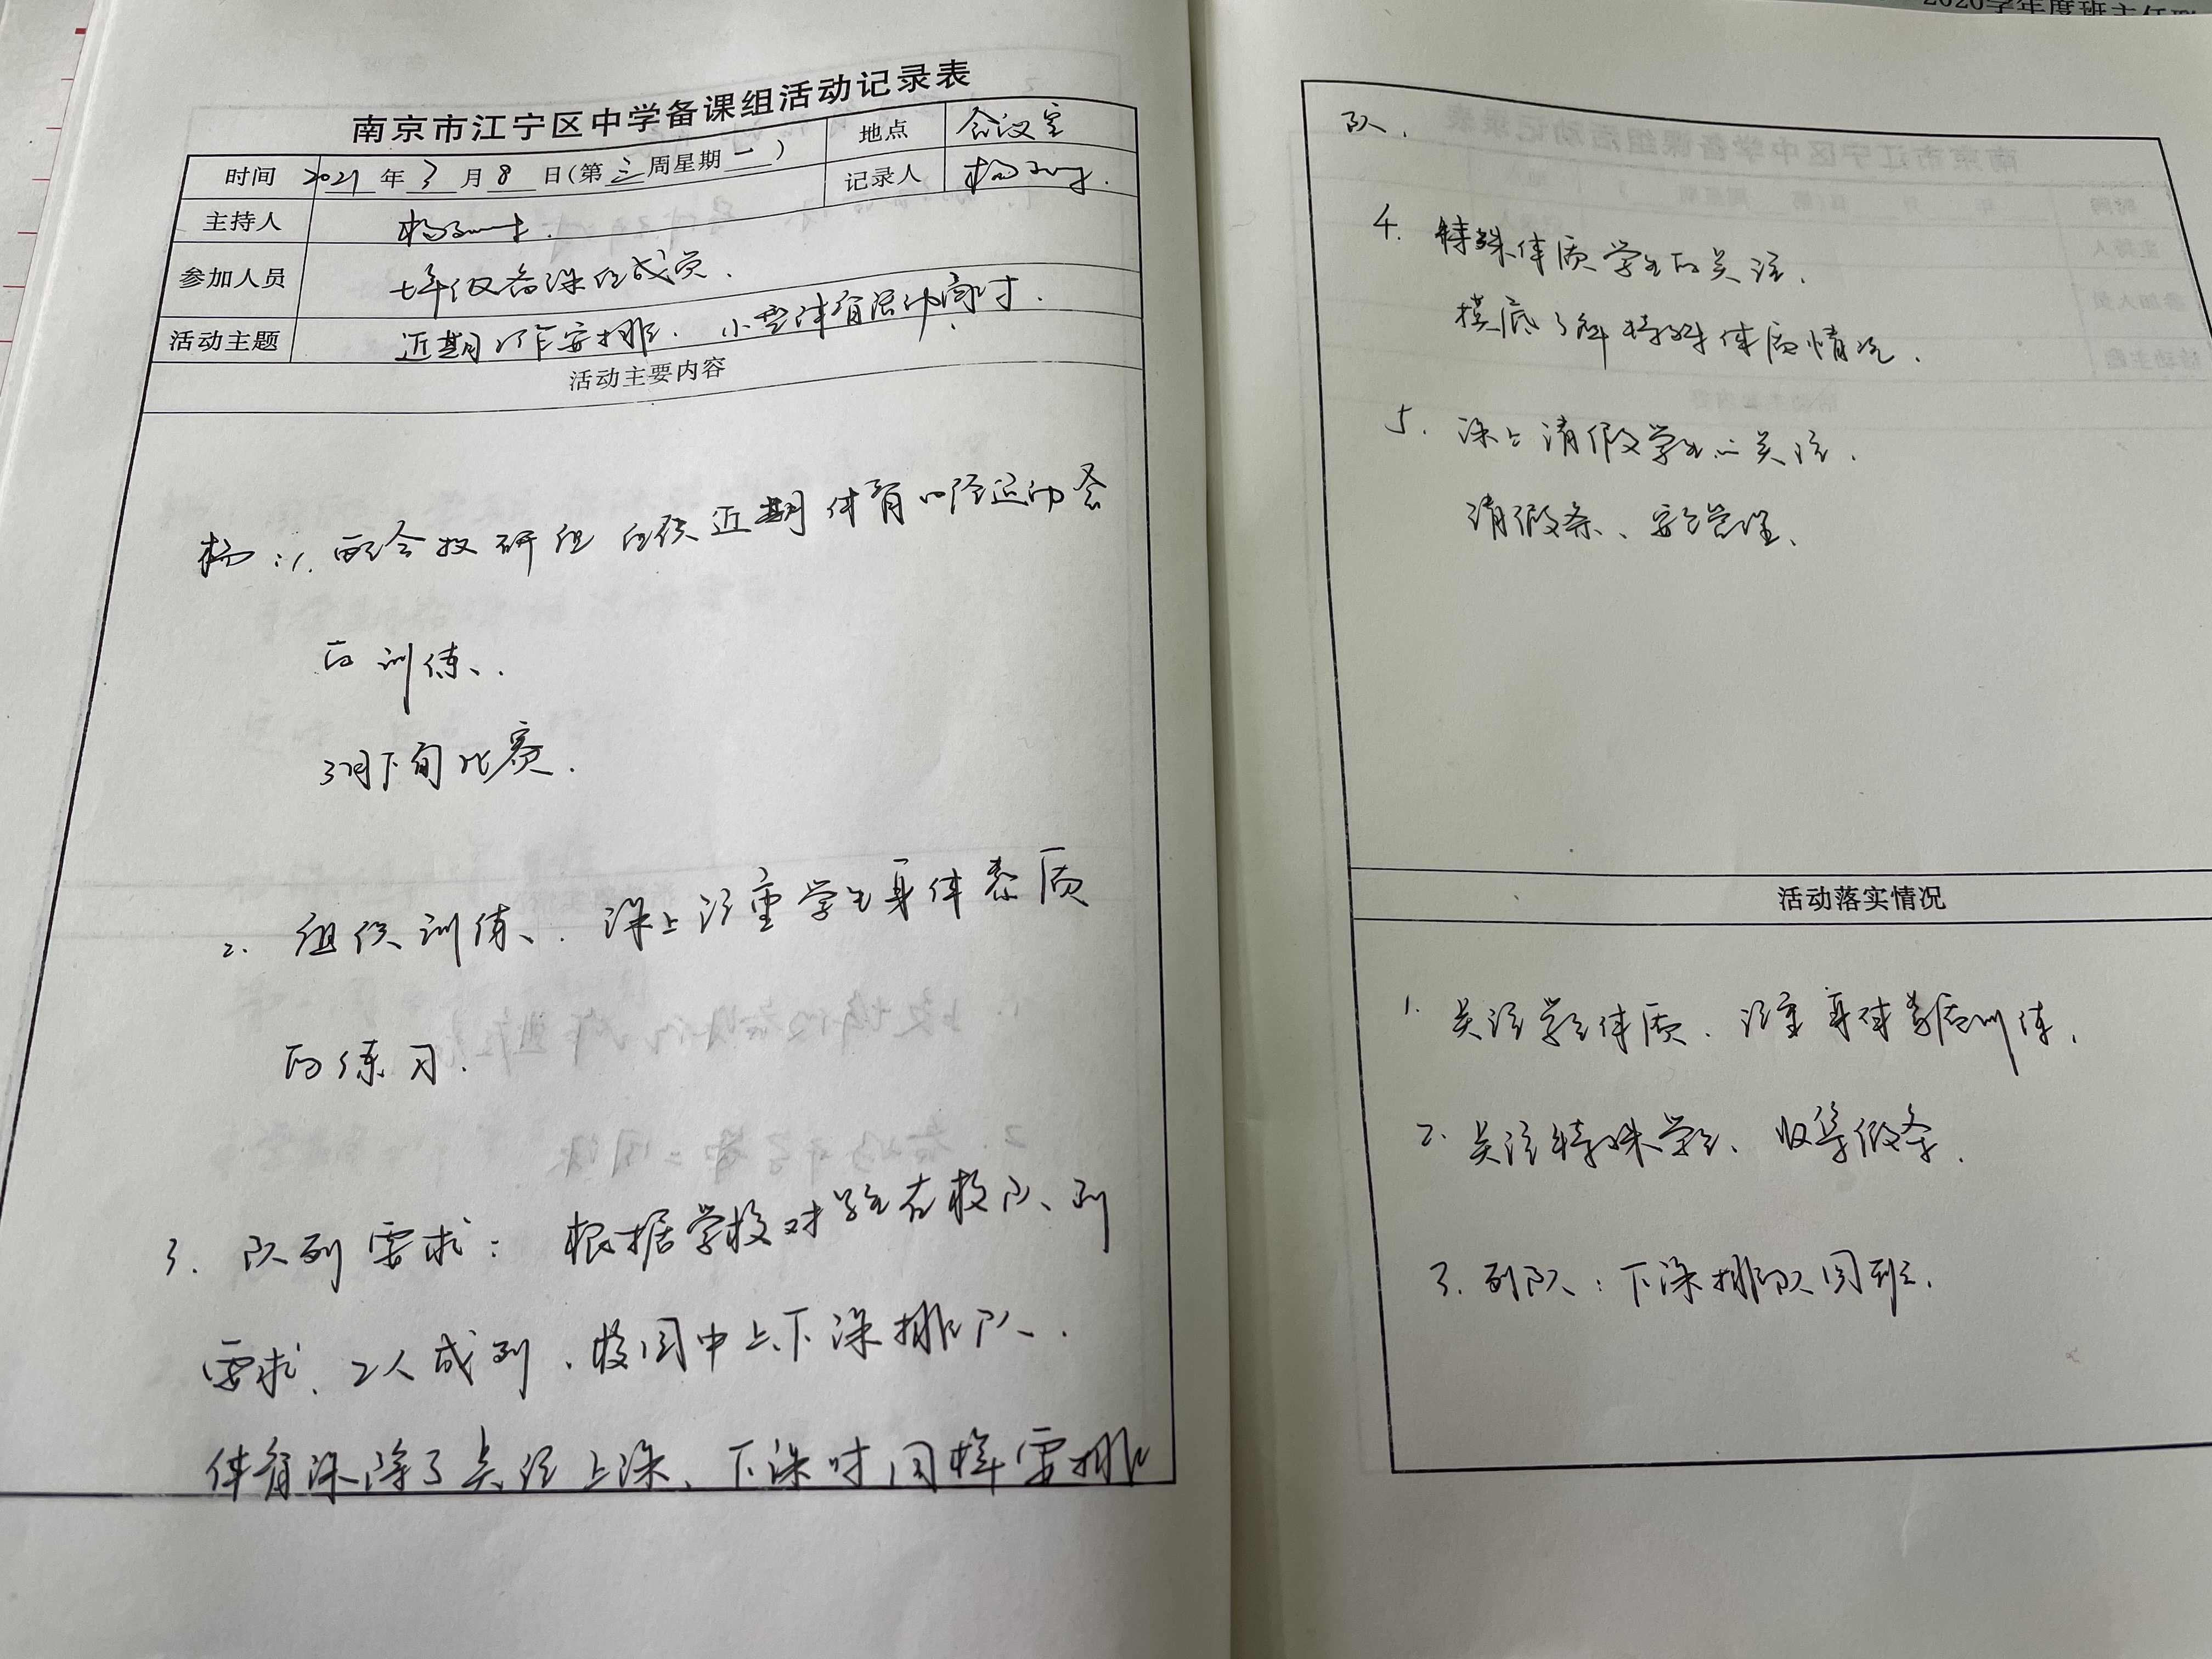 南京市江宁区中学备课组活动记录表
时间 2021年3月8日(第三周星期一) 地点 会议室
记录人 杨
主持人 杨
参加人员 七年级备课组成员.
活动主题 近期工作安排. 小型体育活动商讨.
活动主要内容
杨:1. 配合教研组组织近期体育田径运动会
的训练.
3月下旬比赛.
2. 组织训练. 课上注重学生身体素质
的练习.
3. 队列要求: 根据学校对学生在校队列
要求、2人成列、校园中上下课排队.
体育课除了关注上课、下课时同样需排
队.
4. 特殊体质学生的关注.
摸底了解特殊体质情况.
5. 课上请假学生的关注.
请假条、安全管理.
活动落实情况
1. 关注学生体质. 注重身体素质训练.
2. 关注特殊学生、收集假条.
3. 列队: 下课排队回班.
2020学年度班主任